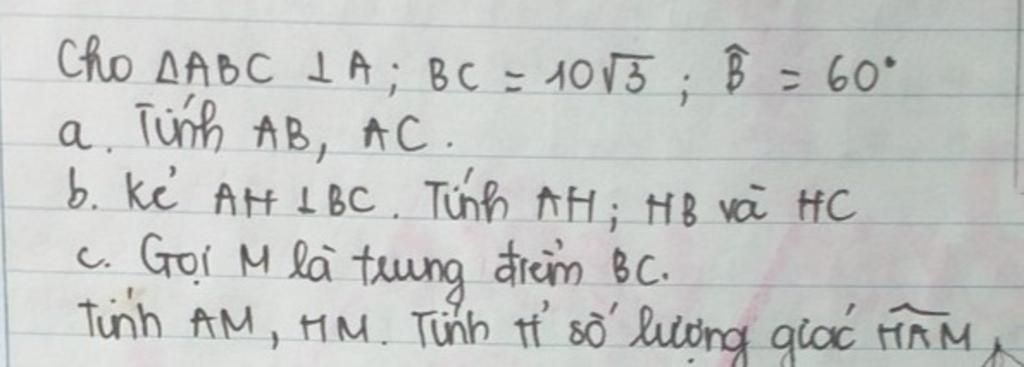 Cho ΔABC ⊥ A; BC = 10√3; B̂ = 60°
a. Tính AB, AC.
b. Kẻ AH ⊥ BC. Tính AH; HB và HC
c. Gọi M là trung điểm BC.
Tính AM, HM. Tính tỉ số lượng giác HAM